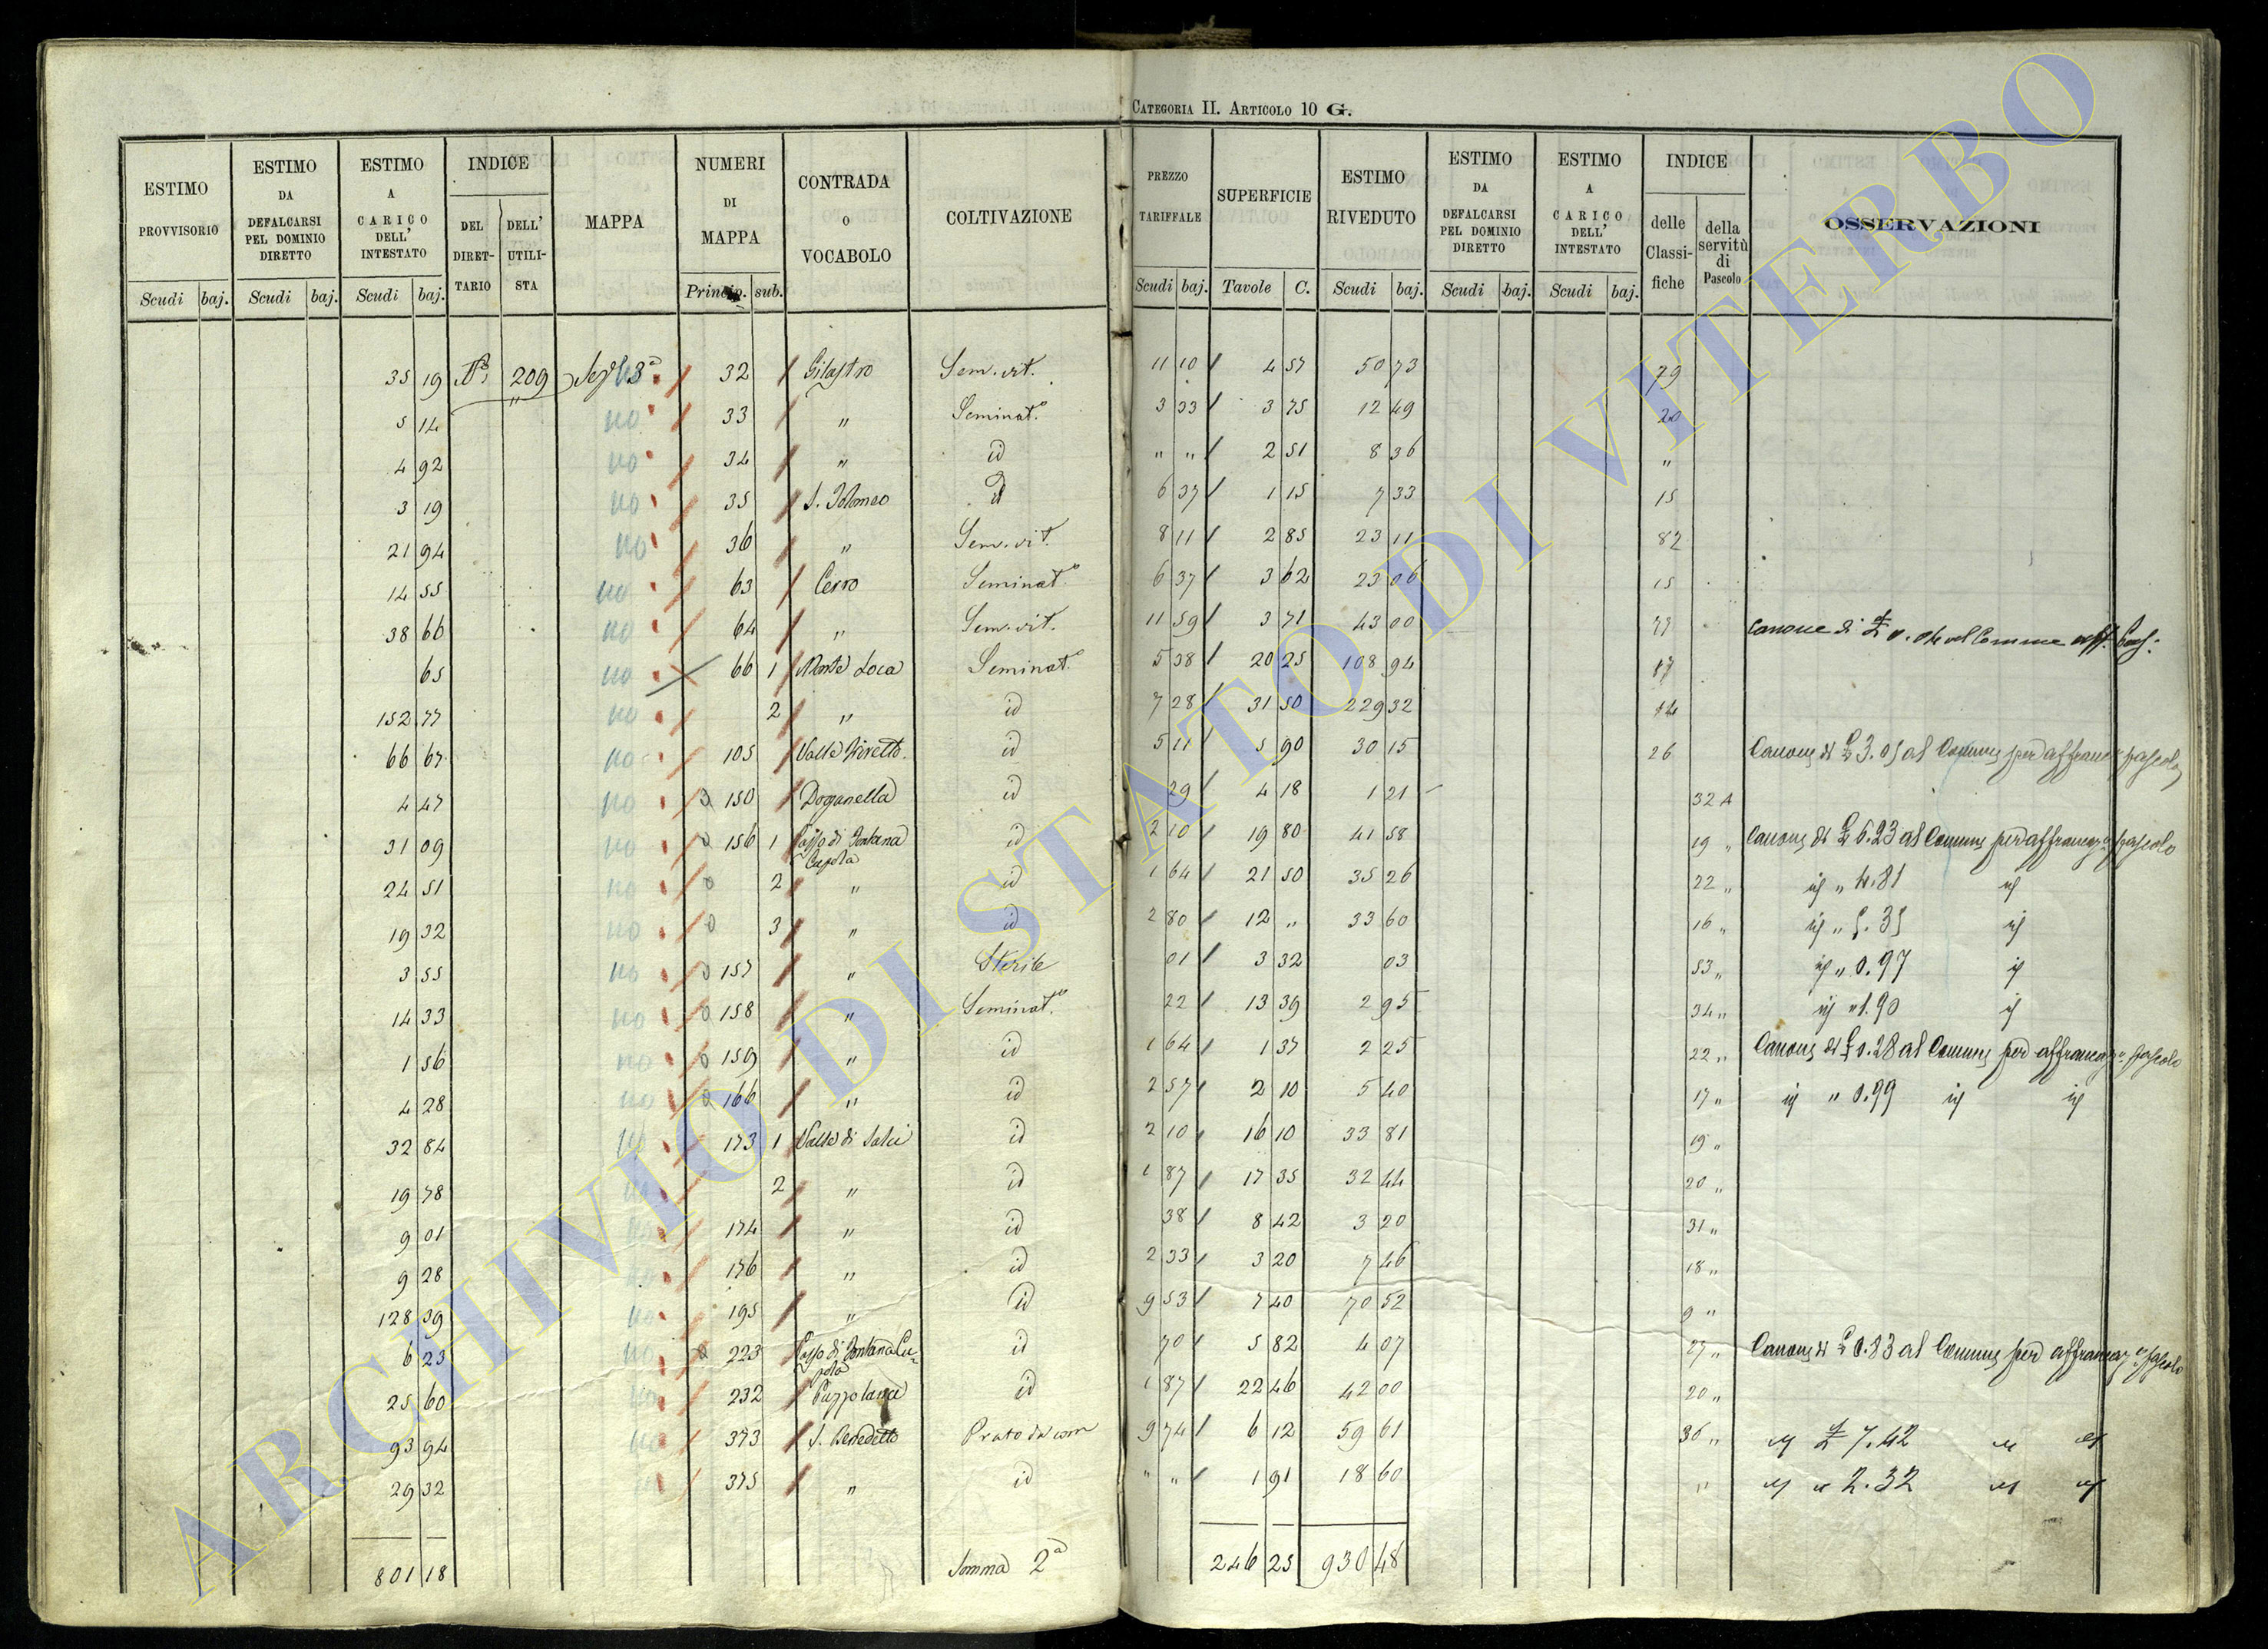 CATEGORIA II. ARTICOLO 10 G.
ESTIMO PROVVISORIO | ESTIMO DA DEFALCARSI PEL DOMINIO DIRETTO | ESTIMO A CARICO DELL' INTESTATO | INDICE DEL DIRETTARIO | DELL' UTILISTA | MAPPA | NUMERI DI MAPPA | CONTRADA O VOCABOLO | COLTIVAZIONE | PREZZO TARIFFALE | SUPERFICIE | ESTIMO RIVEDUTO | ESTIMO DA DEFALCARSI PEL DOMINIO DIRETTO | ESTIMO A CARICO DELL' INTESTATO | INDICE delle Classifiche | della servitù di Pascolo | OSSERVAZIONI
Scudi | baj. | Scudi | baj. | Scudi | baj. | Princip. | sub. | Scudi | baj. | Tavole | C. | Scudi | baj. | Scudi | baj. | Scudi | baj.
35 19 | 209 | 32 | Gilastro | Sem. vit. | 11 10 | 4 57 | 50 73 | 79
5 14 | no | 33 | " | Seminat.o | 3 33 | 3 75 | 12 49 | 20
4 92 | no | 34 | " | id | " " | 2 51 | 8 36 | "
3 19 | no | 35 | S. Tolomeo | id | 6 37 | 1 15 | 7 33 | 15
21 94 | no | 36 | " | Sem. vit. | 8 11 | 2 85 | 23 11 | 82
14 55 | no | 63 | Cerro | Seminat.o | 6 37 | 3 62 | 23 06 | 15
38 66 | no | 64 | " | Sem. vit. | 11 59 | 3 71 | 43 00 | 77 | Canone di £ 0.04 al Comune aff. Pasc.
65 | no | 66 | 1 | Monte Loca | Seminat.o | 5 38 | 20 25 | 108 94 | 17
152 77 | no | 2 | " | id | 7 28 | 31 50 | 229 32 | 14
66 67 | no | 105 | Valle | id | 5 11 | 5 90 | 30 15 | 26 | Canone di £ 3.05 al Comune per affranc. pascolo
4 47 | no | 150 | Doganella | id | 29 | 4 18 | 1 21 | 32 A
31 09 | no | 156 | 1 | Passo di Fontana Cupola | id | 2 10 | 19 80 | 41 58 | 19 " | Canone di £ 6.23 al Comune per affrancaz. pascolo
24 51 | no | 2 | " | id | 1 64 | 21 50 | 35 26 | 22 " | id " 4.81 id
19 32 | no | 3 | " | id | 2 80 | 12 " | 33 60 | 16 " | id " 5.35 id
3 55 | no | 157 | " | Sterile | 01 | 3 32 | 03 | 53 " | id " 0.97 id
14 33 | no | 158 | " | Seminat.o | 22 | 13 39 | 2 95 | 34 " | id " 1.90 id
1 56 | no | 159 | " | id | 1 64 | 1 37 | 2 25 | 22 " | Canone di £ 0.28 al Comune per affrancaz. pascolo
4 28 | no | 166 | " | id | 2 57 | 2 10 | 5 40 | 17 " | id " 0.99 id id
32 84 | no | 173 | 1 | Valle di Salci | id | 2 10 | 16 10 | 33 81 | 19 "
19 78 | no | 2 | " | id | 1 87 | 17 35 | 32 44 | 20 "
9 01 | no | 174 | " | id | 38 | 8 42 | 3 20 | 31 "
9 28 | no | 176 | " | id | 2 33 | 3 20 | 7 46 | 18 "
128 39 | no | 195 | " | id | 9 53 | 7 40 | 70 52 | 9 "
6 23 | no | 223 | Passo di Fontana Cupola | id | 70 | 5 82 | 4 07 | 27 " | Canone di £ 0.83 al Comune per affrancaz. pascolo
25 60 | no | 232 | Puzzolana | id | 1 87 | 22 46 | 42 00 | 20 "
93 94 | no | 373 | S. Benedetto | Prato da | 9 74 | 6 12 | 59 61 | 36 " | id £ 7.42 id id
29 32 | 375 | " | id | " " | 1 91 | 18 60 | " | id " 2.32 id id
801 18 | Somma 2a | 246 25 | 930 48
ARCHIVIO DI STATO DI VITERBO